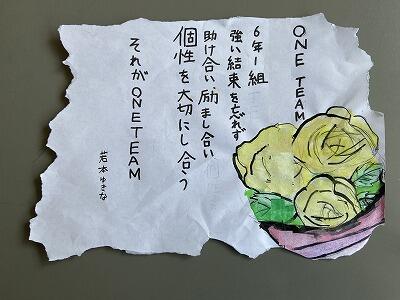 ONE TEAM
6年1組
強い結束を忘れず
助け合い励まし合い
個性を大切にし合う
それがONETEAM
若本ゆきな